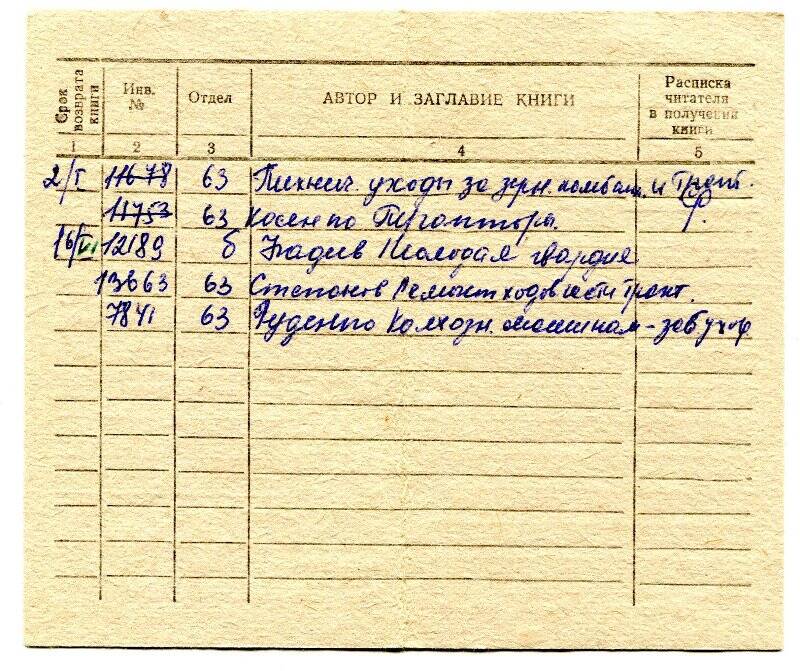 Срок возврата книги Инв. № Отдел АВТОР И ЗАГЛАВИЕ КНИГИ Расписка читателя в получении книги
1 2 3 4 5
2/I 11678 63 Технич. уходы за зерн. комбайн. и Тракт.
11753 63 Косенко
16/VI 12189 б Фадеев Молодая гвардия
13663 63 Степанов Ремонт ходов части Тракт.
7841 63 Руденко Колхозн.